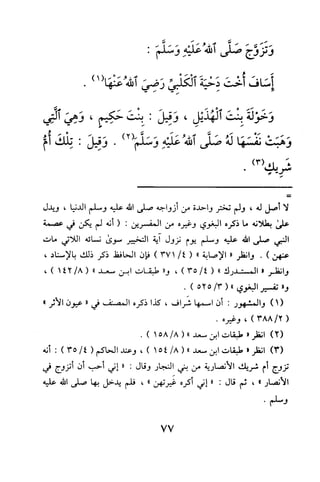 وَتَزَوَّجَ صَلَّى ٱللهُ عَلَيْهِ وَسَلَّمَ :
إِسَافَ أُخْتَ دَحْيَةَ ٱلْكَلْبِيِّ رَضِيَ ٱللهُ عَنْهَا(١) .
وَخَوْلَةَ بِنْتَ ٱلْهُذَيْلِ ، وَقِيلَ : بِنْتَ حَكِيمٍ ، وَهِيَ ٱلَّتِي
وَهَبَتْ نَفْسَهَا لَهُ صَلَّى ٱللهُ عَلَيْهِ وَسَلَّمَ(٢) . وَقِيلَ : تِلْكَ أُمُّ
شَرِيكٍ(٣) .
=
لا أصل له ، ولم تختر واحدة من أزواجه صلى الله عليه وسلم الدنيا ، ويدل
على بطلانه ما ذكره البغوي وغيره من المفسرين : ( أنه لم يكن في عصمة
النبي صلى الله عليه وسلم يوم نزول آية التخيير سوىٰ نسائه اللاتي مات
عنهن ) . وانظر « الإصابة » ( ٤/ ٣٧١ ) فإن الحافظ ذكر ذلك بالإسناد ،
وانظر « المستدرك » ( ٤/ ٣٥ ) ، و« طبقات ابن سعد » ( ٨/ ١٤٢ ) ،
و« تفسير البغوي » ( ٣/ ٥٢٥ ) .
(١) والمشهور : أن اسمها شَراف ، كذا ذكره المصنف في « عيون الأثر »
( ٢/ ٣٨٨ ) ، وغيره .
(٢) انظر « طبقات ابن سعد » ( ٨/ ١٥٨ ) .
(٣) انظر « طبقات ابن سعد » ( ٨/ ١٥٤ ) ، وعند الحاكم ( ٤/ ٣٥ ) : أنه
تزوج أم شريك الأنصارية من بني النجار وقال : « إني أحب أن أتزوج في
الأنصار » ، ثم قال : « إني أكره غيرتهن » ، فلم يدخل بها صلى الله عليه
وسلم .
٧٧